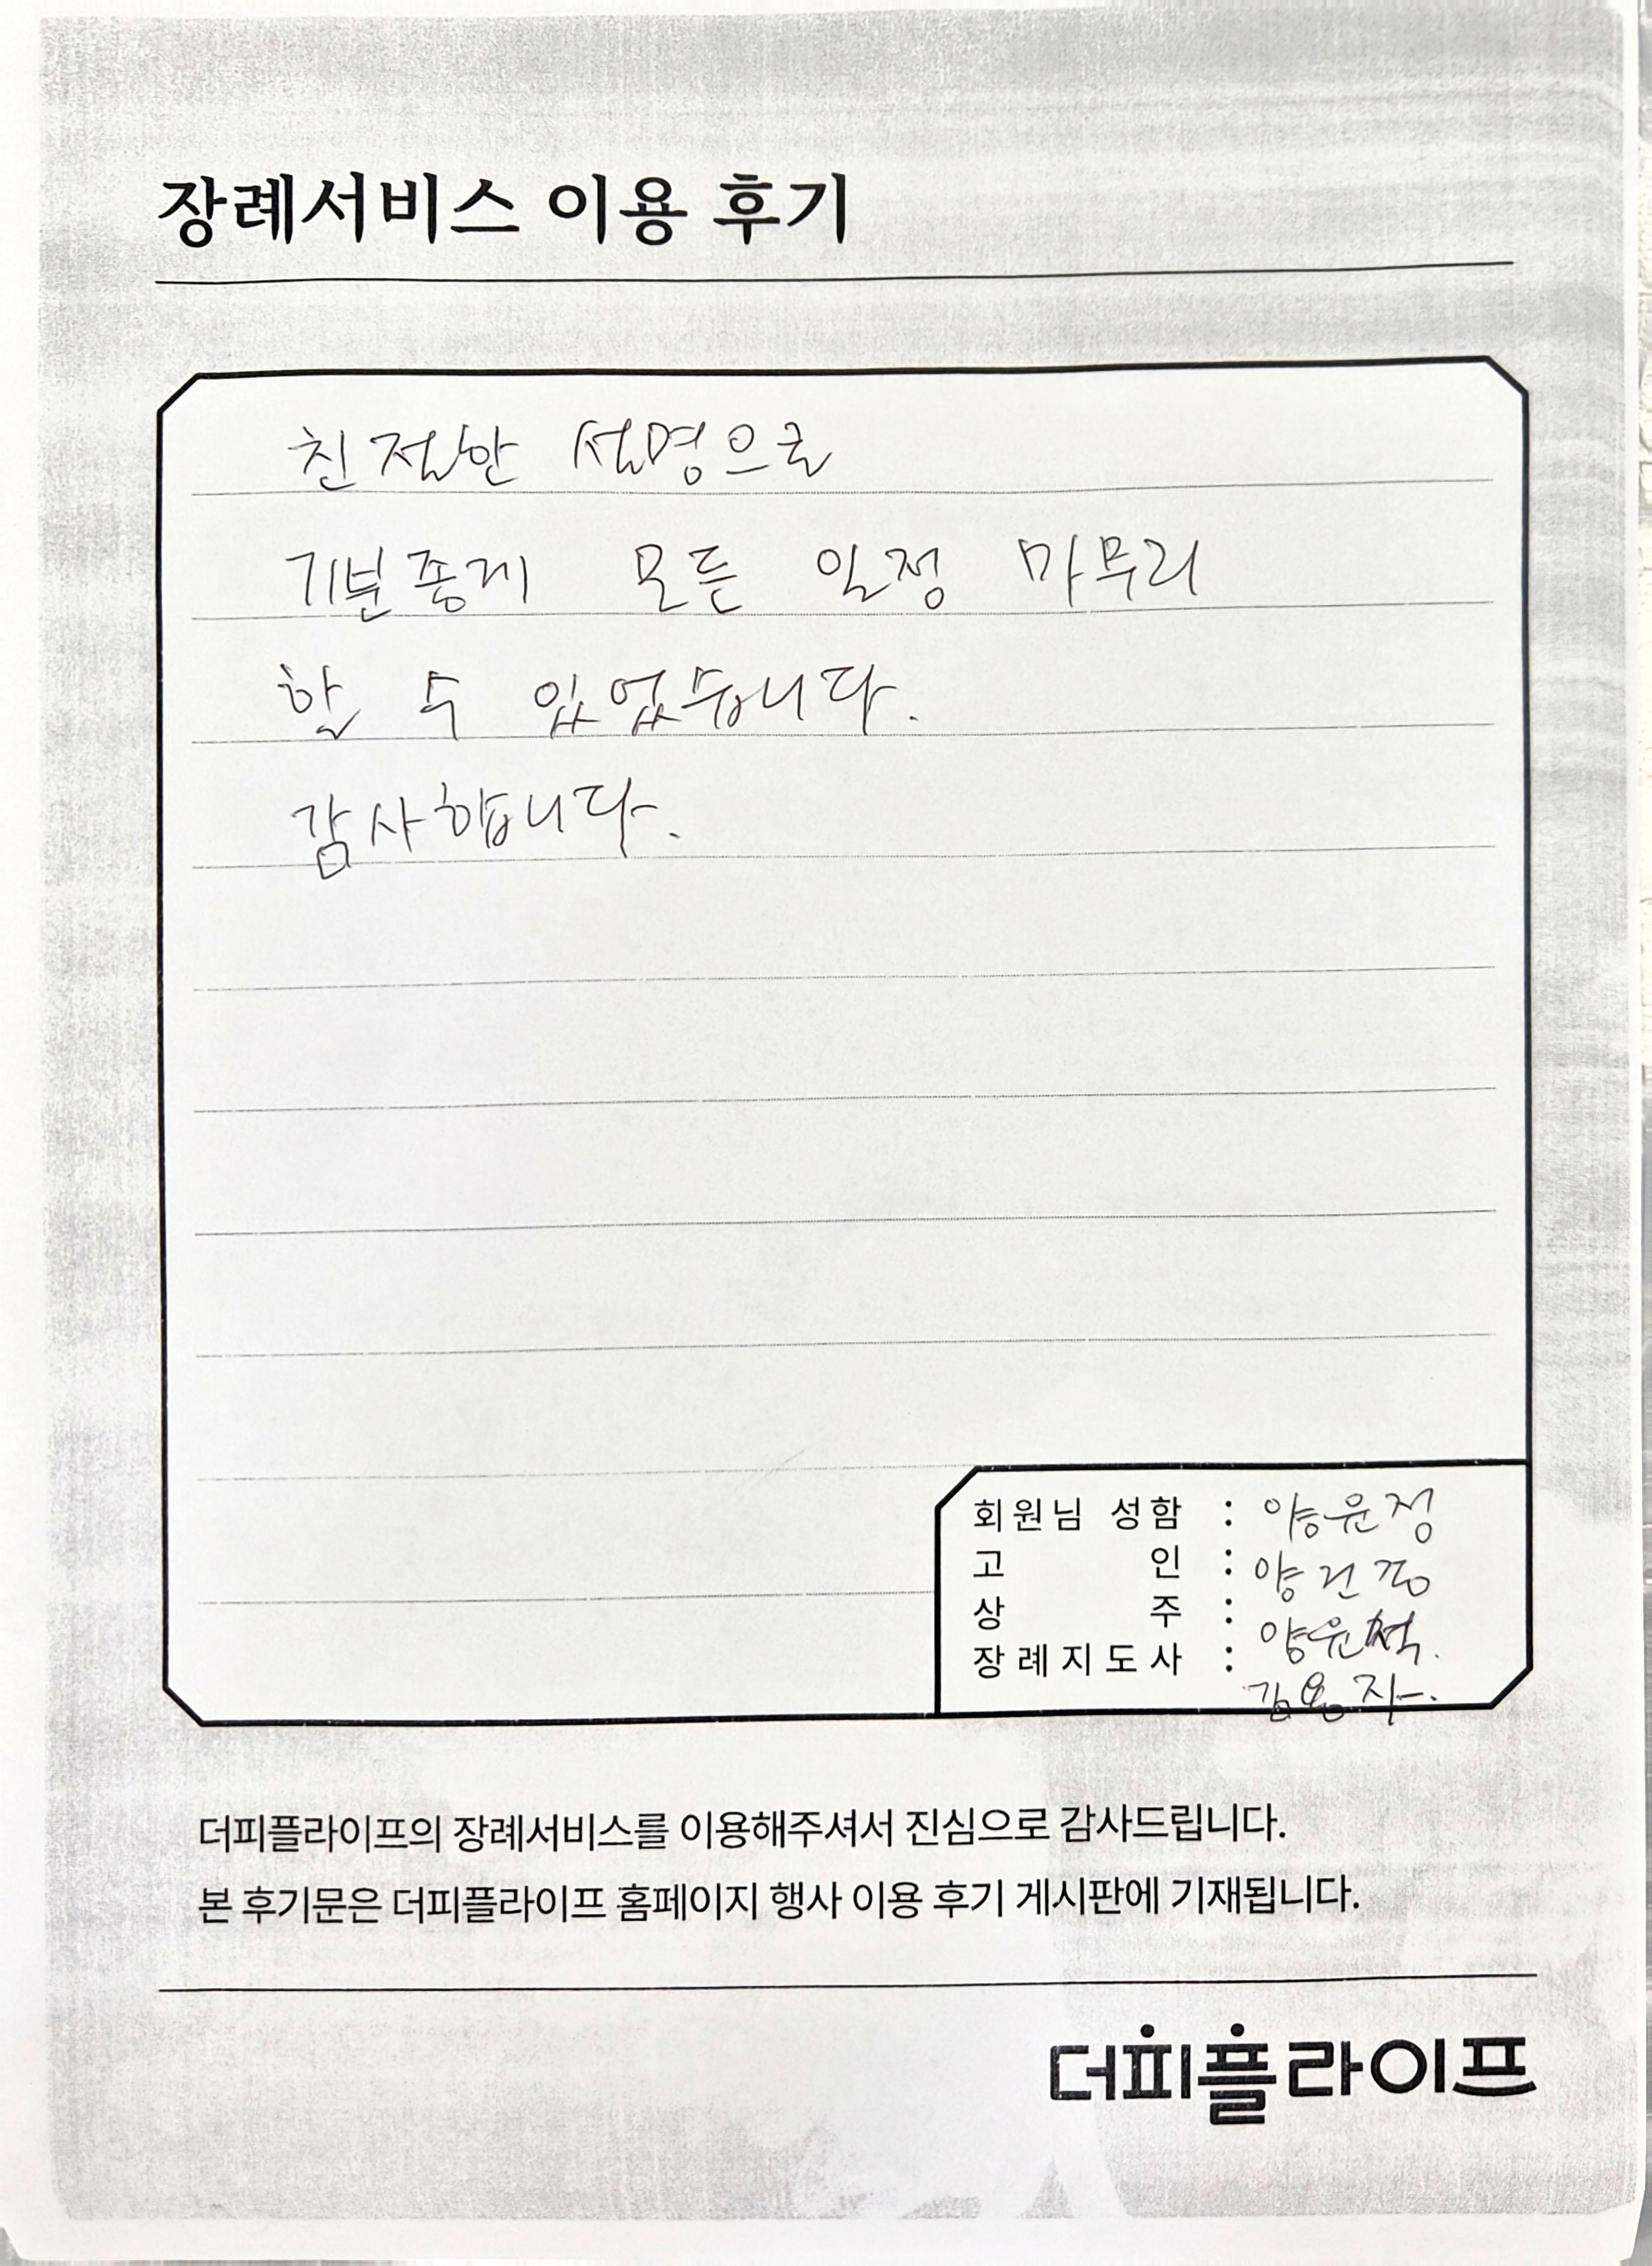 장례서비스 이용 후기
친절한 설명으로
기분좋게 모든 일정 마무리
할 수 있었습니다.
감사합니다.
회원님 성함 : 양윤정
고 인 : 양건
상 주 : 양윤석.
장례지도사 : 김용
더피플라이프의 장례서비스를 이용해주셔서 진심으로 감사드립니다.
본 후기문은 더피플라이프 홈페이지 행사 이용 후기 게시판에 기재됩니다.
더피플라이프